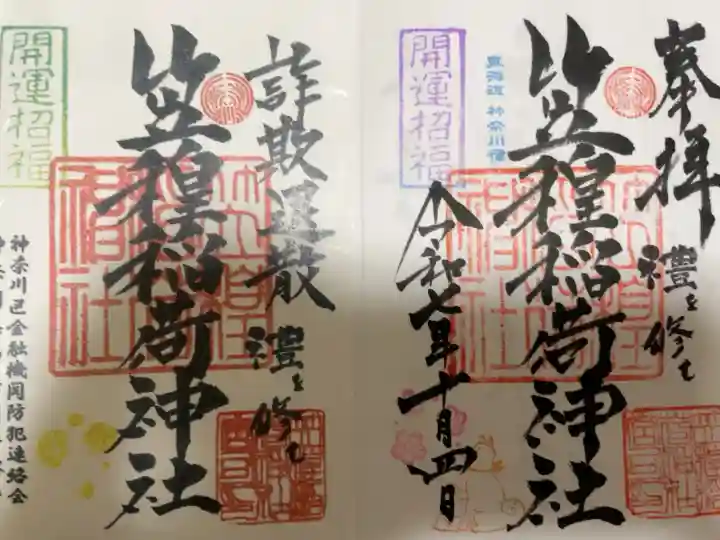 奉拝
禮を修て
笠䅣稲荷神社
東海道 神奈川宿
開運招福
令和七年十月四日
詐欺退散
禮を修て
笠䅣稲荷神社
開運招福
神奈川区金融機関防犯連絡会